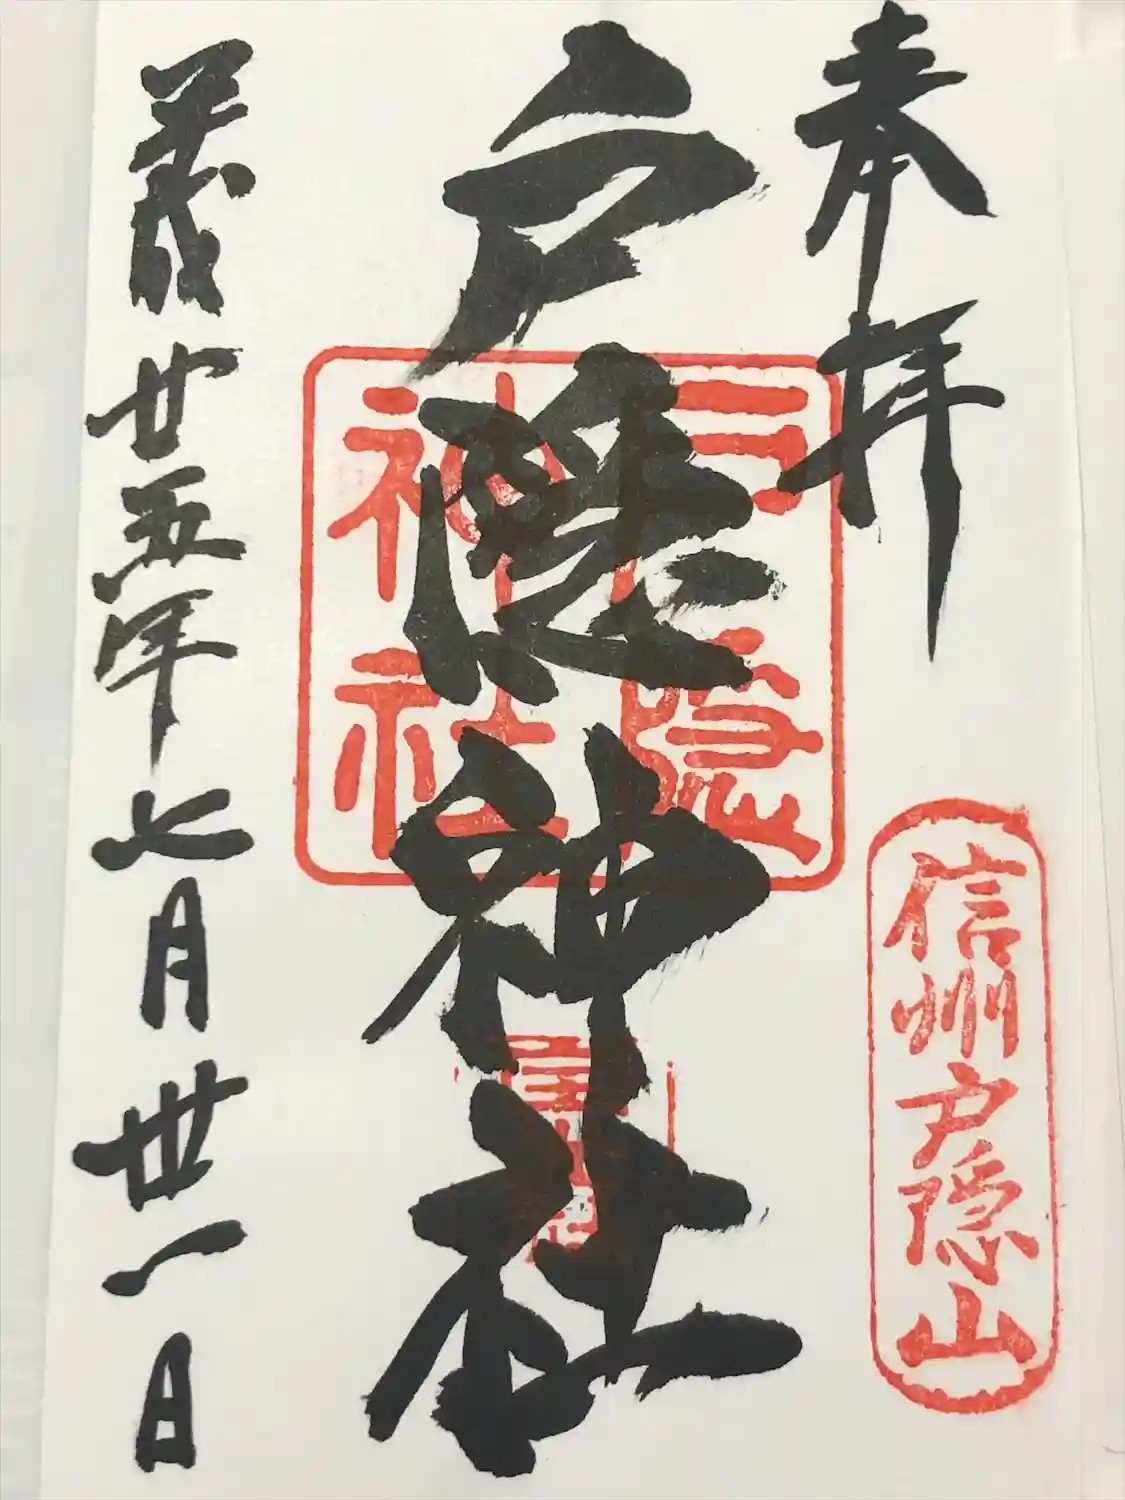 奉拝
信州戸隠山
戸隠神社
戸隠
神社
廿五年七月丗一日